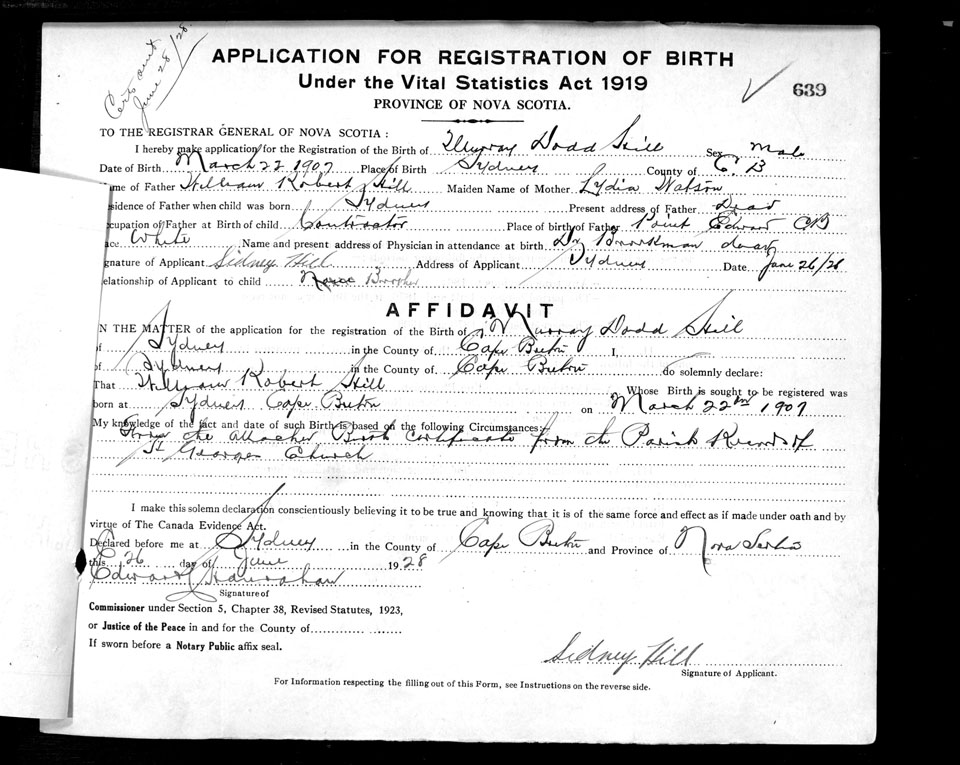 Certs sent
June 28/28
APPLICATION FOR REGISTRATION OF BIRTH
Under the Vital Statistics Act 1919
639
PROVINCE OF NOVA SCOTIA.
TO THE REGISTRAR GENERAL OF NOVA SCOTIA :
I hereby make application for the Registration of the Birth of Murray Dodd Hill Sex Male
Date of Birth March 22 1907 Place of Birth Sydney County of C. B
me of Father William Robert Hill Maiden Name of Mother Lydia Watson
sidence of Father when child was born Sydney Present address of Father Dead
cupation of Father at Birth of child Contractor Place of birth of Father Point Edward CB
ace White Name and present address of Physician in attendance at birth Dr
gnature of Applicant Sidney Hill Address of Applicant Sydney Date June 26/28
elationship of Applicant to child Brother
AFFIDAVIT
IN THE MATTER of the application for the registration of the Birth of Murray Dodd Hill
of Sydney in the County of Cape Breton I,
of Sydney in the County of Cape Breton do solemnly declare:
That William Robert Hill Whose Birth is sought to be registered was
born at Sydney Cape Breton on March 22nd 1907
My knowledge of the fact and date of such Birth is based on the following Circumstances:
From the attached Birth Certificate from the Parish Records of
St Georges Church
I make this solemn declaration conscientiously believing it to be true and knowing that it is of the same force and effect as if made under oath and by
virtue of The Canada Evidence Act.
Declared before me at Sydney in the County of Cape Breton and Province of Nova Scotia
this 26 day of June 1928
Edward
Signature of
Commissioner under Section 5, Chapter 38, Revised Statutes, 1923,
or Justice of the Peace in and for the County of
If sworn before a Notary Public affix seal.
Sidney Hill
Signature of Applicant.
For Information respecting the filling out of this Form, see Instructions on the reverse side.